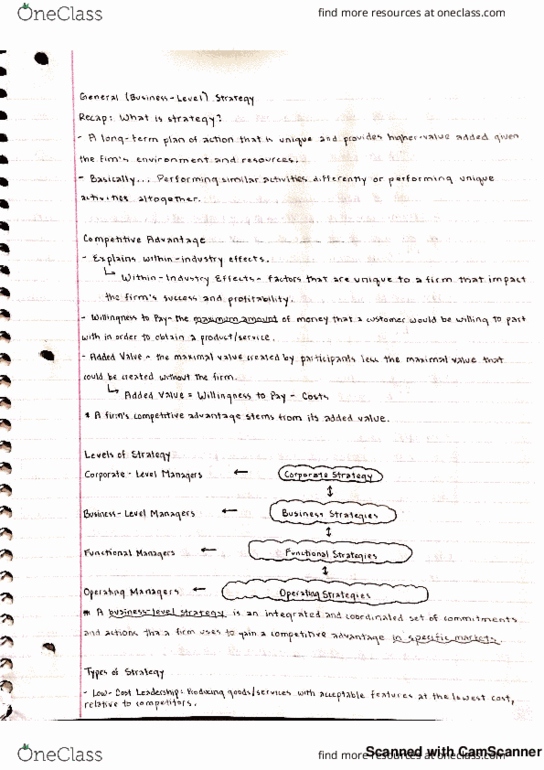 OneClass
find more resources at oneclass.com
General (Business-Level) Strategy
Recap: What is strategy?
- A long-term plan of action that is unique and provides higher-value added given
the firm's environment and resources.
- Basically... Performing similar activities differently or performing unique
activities altogether.
Competitive Advantage
- Explains within-industry effects.
↳ Within-Industry Effects - factors that are unique to a firm that impact
the firm's success and profitability.
- Willingness to Pay - the maximum amount of money that a customer would be willing to part
with in order to obtain a product/service.
- Added Value - the maximal value created by participants less the maximal value that
could be created without the firm.
↳ Added Value = Willingness to Pay - Costs
* A firm's competitive advantage stems from its added value.
Levels of Strategy
Corporate-Level Managers ← Corporate Strategy
↕
Business-Level Managers ← Business Strategies
↕
Functional Managers ← Functional Strategies
↕
Operating Managers ← Operating Strategies
* A business-level strategy is an integrated and coordinated set of commitments
and actions tha a firm uses to gain a competitive advantage in specific markets.
Types of Strategy
- Low-Cost Leadership: Producing goods/services with acceptable features at the lowest cost,
relative to competitors.
OneClass
find more resources at oneclass.com
Scanned with CamScanner